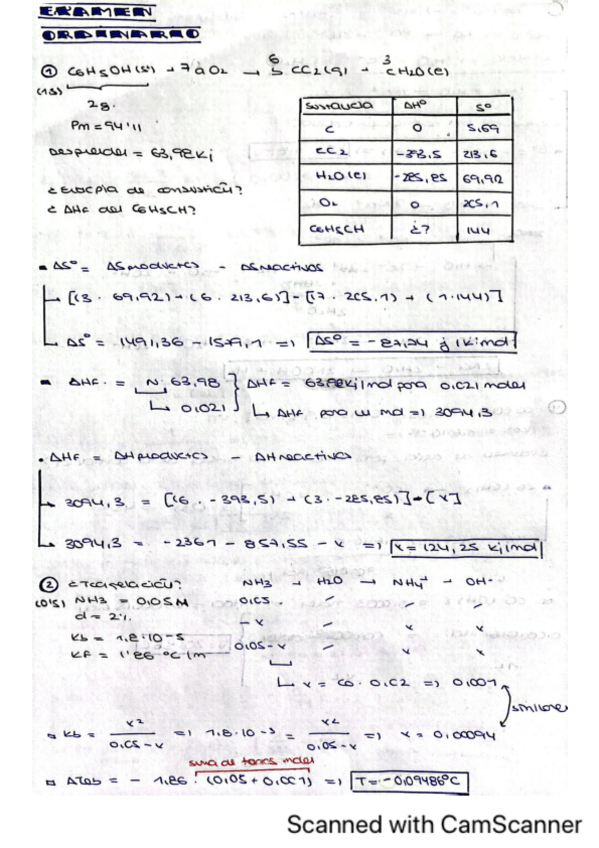 EXAMEN
ORDINARIO
① C6H5OH(s) + 7 O2 → 6 CO2(g) + 3 H2O(l)
(1'5)
2g.
Pm = 94'11
Desprenden = 63,98 kj
¿Entropía de combustión?
¿ΔHf del C6H5OH?
Sustancia ΔH° S°
C 0 5,69
CO2 -393,5 213,6
H2O(l) -285,85 69,92
O2 0 205,1
C6H5OH ¿? 144
▪ ΔS° = ΔSproductos - ΔSreactivos
↳ [(3 · 69,92) + (6 · 213,6)] - [7 · 205,1) + (1·144)]
↳ ΔS° = 1491,36 - 1579,7 => ΔS° = -87,24 j/kmol
▪ ΔHf = N 63,98 } ΔHf = 63,98 kj/mol para 0,021 moles
↳ 0,021 ↳ ΔHf para un mol => 3094,3
▪ ΔHf = ΔHproductos - ΔHreactivos
↳ 3094,3 = [(6 · -393,5) + (3 · -285,85)] - [x]
↳ 3094,3 = -2361 - 857,55 - x => x = 124,25 kj/mol
② ¿Tcongelación? NH3 + H2O → NH4+ + OH-
(0'5) NH3 = 0,05M 0,05 - - -
α = 2% -x - x x
Kb = 1.8·10-5 0,05-x - x x
Kf = 1'86 °C/m
↳ x = Co · 0,02 => 0,001
similares
▪ Kb = x2 / 0,05-x => 1.8·10-5 = x2 / 0,05-x => x = 0,00094
suma de todos moles
▪ ΔTeb = - 1.86 · (0,05 + 0,001) => T = -0,09486°C
Scanned with CamScanner